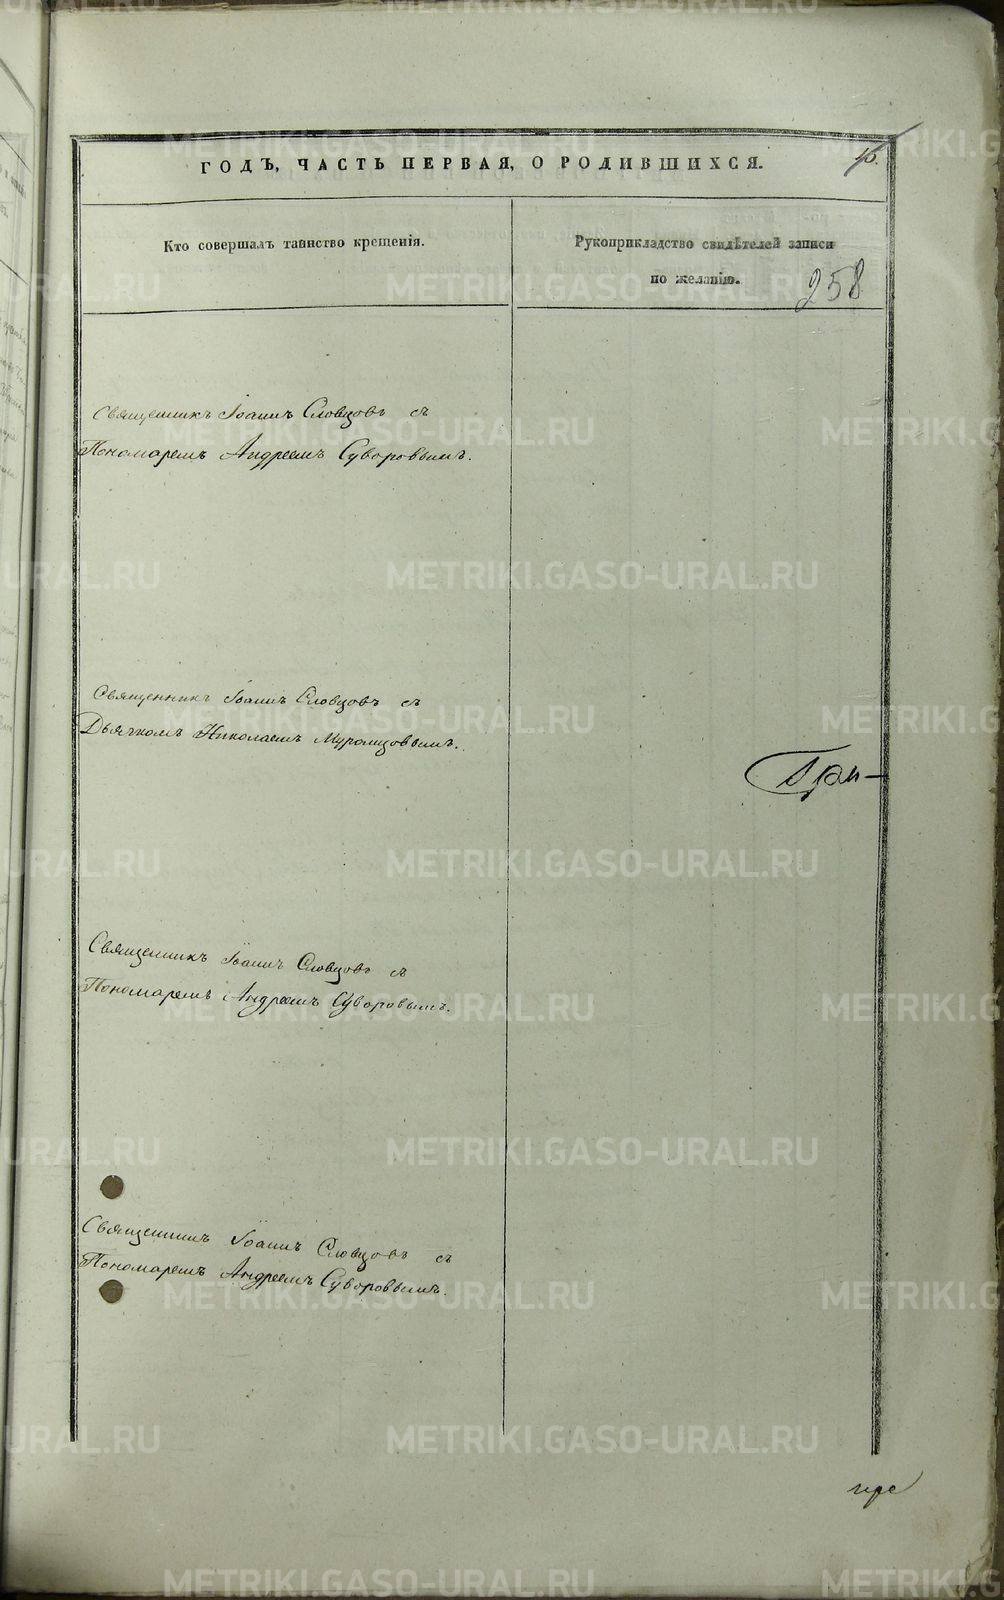 ГОДЪ, ЧАСТЬ ПЕРВАЯ, О РОДИВШИХСЯ.
Кто совершалъ таинство крещенія.
Рукоприкладство свидѣтелей записи
по желанію.
258
Священникъ Іоаннъ Словцовъ съ
Пономаремъ Андреемъ Суворовымъ.
Священникъ Іоаннъ Словцовъ съ
Дьячкомъ Николаемъ Муромцовымъ.
При-
Священникъ Іоаннъ Словцовъ съ
Пономаремъ Андреемъ Суворовымъ.
Священникъ Іоаннъ Словцовъ съ
Пономаремъ Андреемъ Суворовымъ.
METRIKI.GASO-URAL.RU